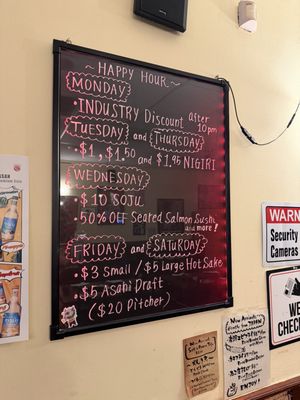 ~ HAPPY HOUR ~
MONDAY
• INDUSTRY Discount after 10pm
TUESDAY and THURSDAY
• $1, $1.50 and $1.95 NIGIRI
WEDNESDAY
• $10 SOJU
• 50% OFF Seared Salmon Sushi
and more!
FRIDAY and SATURDAY
• $3 Small / $5 Large Hot Sake
• $5 Asahi Draft
($20 Pitcher)
WARN
Security
Cameras
WE
CHECK